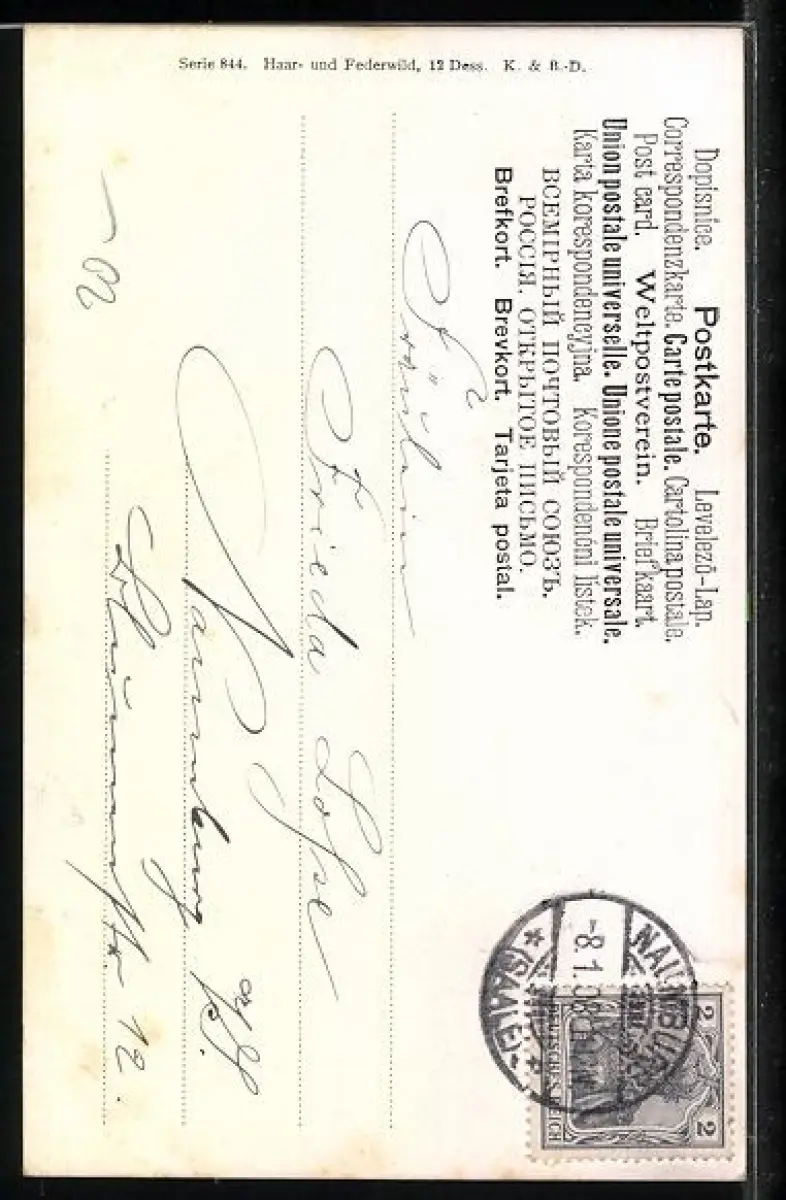 Serie 844. Haar- und Federwild, 12 Dess. K. & B.-D.
Dopisnice. Postkarte. Levelező-Lap.
Correspondenzkarte. Carte postale. Cartolina postale.
Post card. Weltpostverein. Briefkaart.
Union postale universelle. Unione postale universale.
Karta korespondencyjna. Korespondenční lístek.
ВСЕМІРНЫЙ ПОЧТОВЫЙ СОЮЗЪ.
РОССІЯ. ОТКРЫТОЕ ПИСЬМО.
Brefkort. Brevkort. Tarjeta postal.
NAUMBURG
(SAALE)
-8.1.08
2
2
DEUTSCHES REICH
Fräulein
Frieda Lohse
Naumburg a/S.
12.